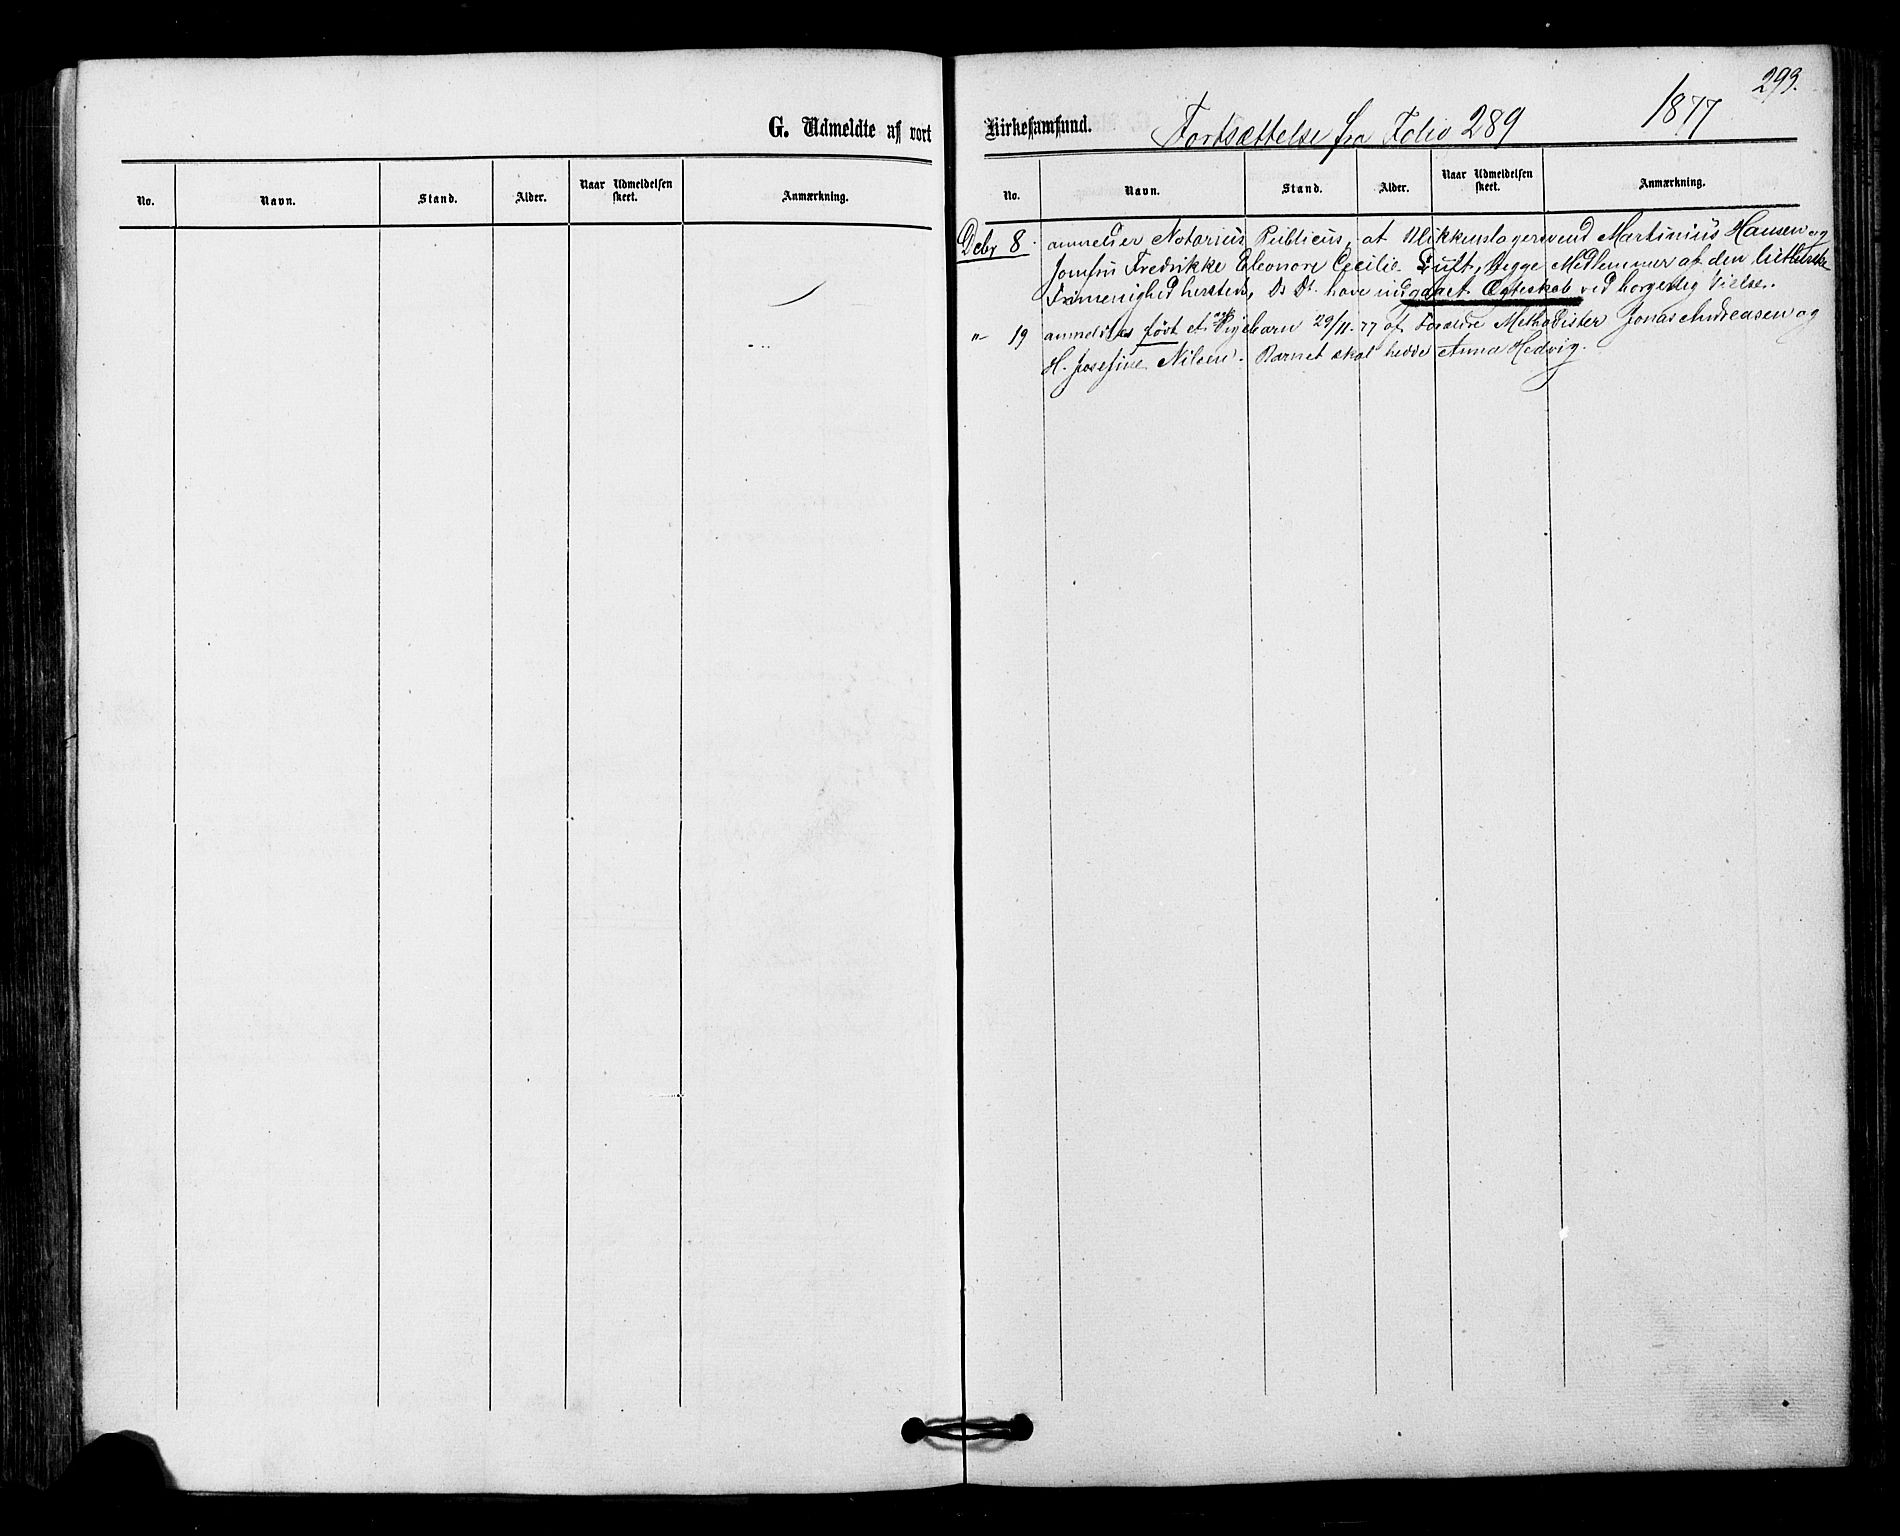 293.
G. Udmeldte af vort Kirkesamfund. Fortsættelse fra Folio 289 1877
No. Navn. Stand. Alder. Naar Udmeldelsen skeet. Anmærkning.
No. Navn. Stand. Alder. Naar Udmeldelsen skeet. Anmærkning.
Debr 8. anmelder Notarius Publicus, at Blikkenslagersvend Martinius Hansen og
Jomfru Fredrikke Eleonore Cecilie Tuft, Begge Medlemmer af den lutherske
Frimenighed hersteds, Ds Dt. have indgaaet Ægteskab ved borgerlig Vielse.
"- 19 anmeldtes født et Pigebarn 29/11-77 af Forældre Methodister Jonas Andreasen og
H. Josefine Nilsen. Barnet skal hedde Anna Hedvig.